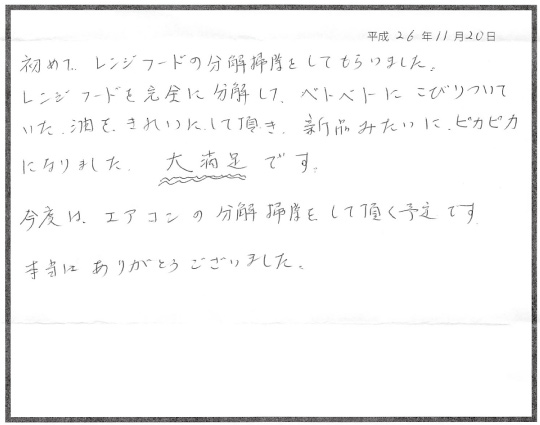 平成26年11月20日
初めて、レンジフードの分解掃除をしてもらいました。
レンジフードを完全に分解して、ベトベトにこびりついて
いた、油を、きれいにして頂き、新品みたいに、ピカピカ
になりました。大満足です。
今度は、エアコンの分解掃除をして頂く予定です。
本当にありがとうございました。